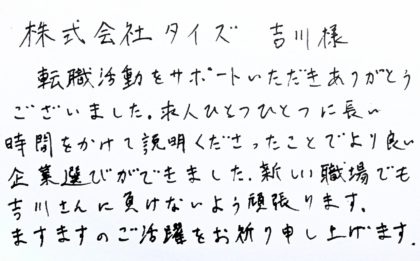 株式会社タイズ 吉川様
転職活動をサポートいただきありがとう
ございました。求人ひとつひとつに長い
時間をかけて説明くださったことでより良い
企業選びができました。新しい職場でも
吉川さんに負けないよう頑張ります。
ますますのご活躍をお祈り申し上げます。